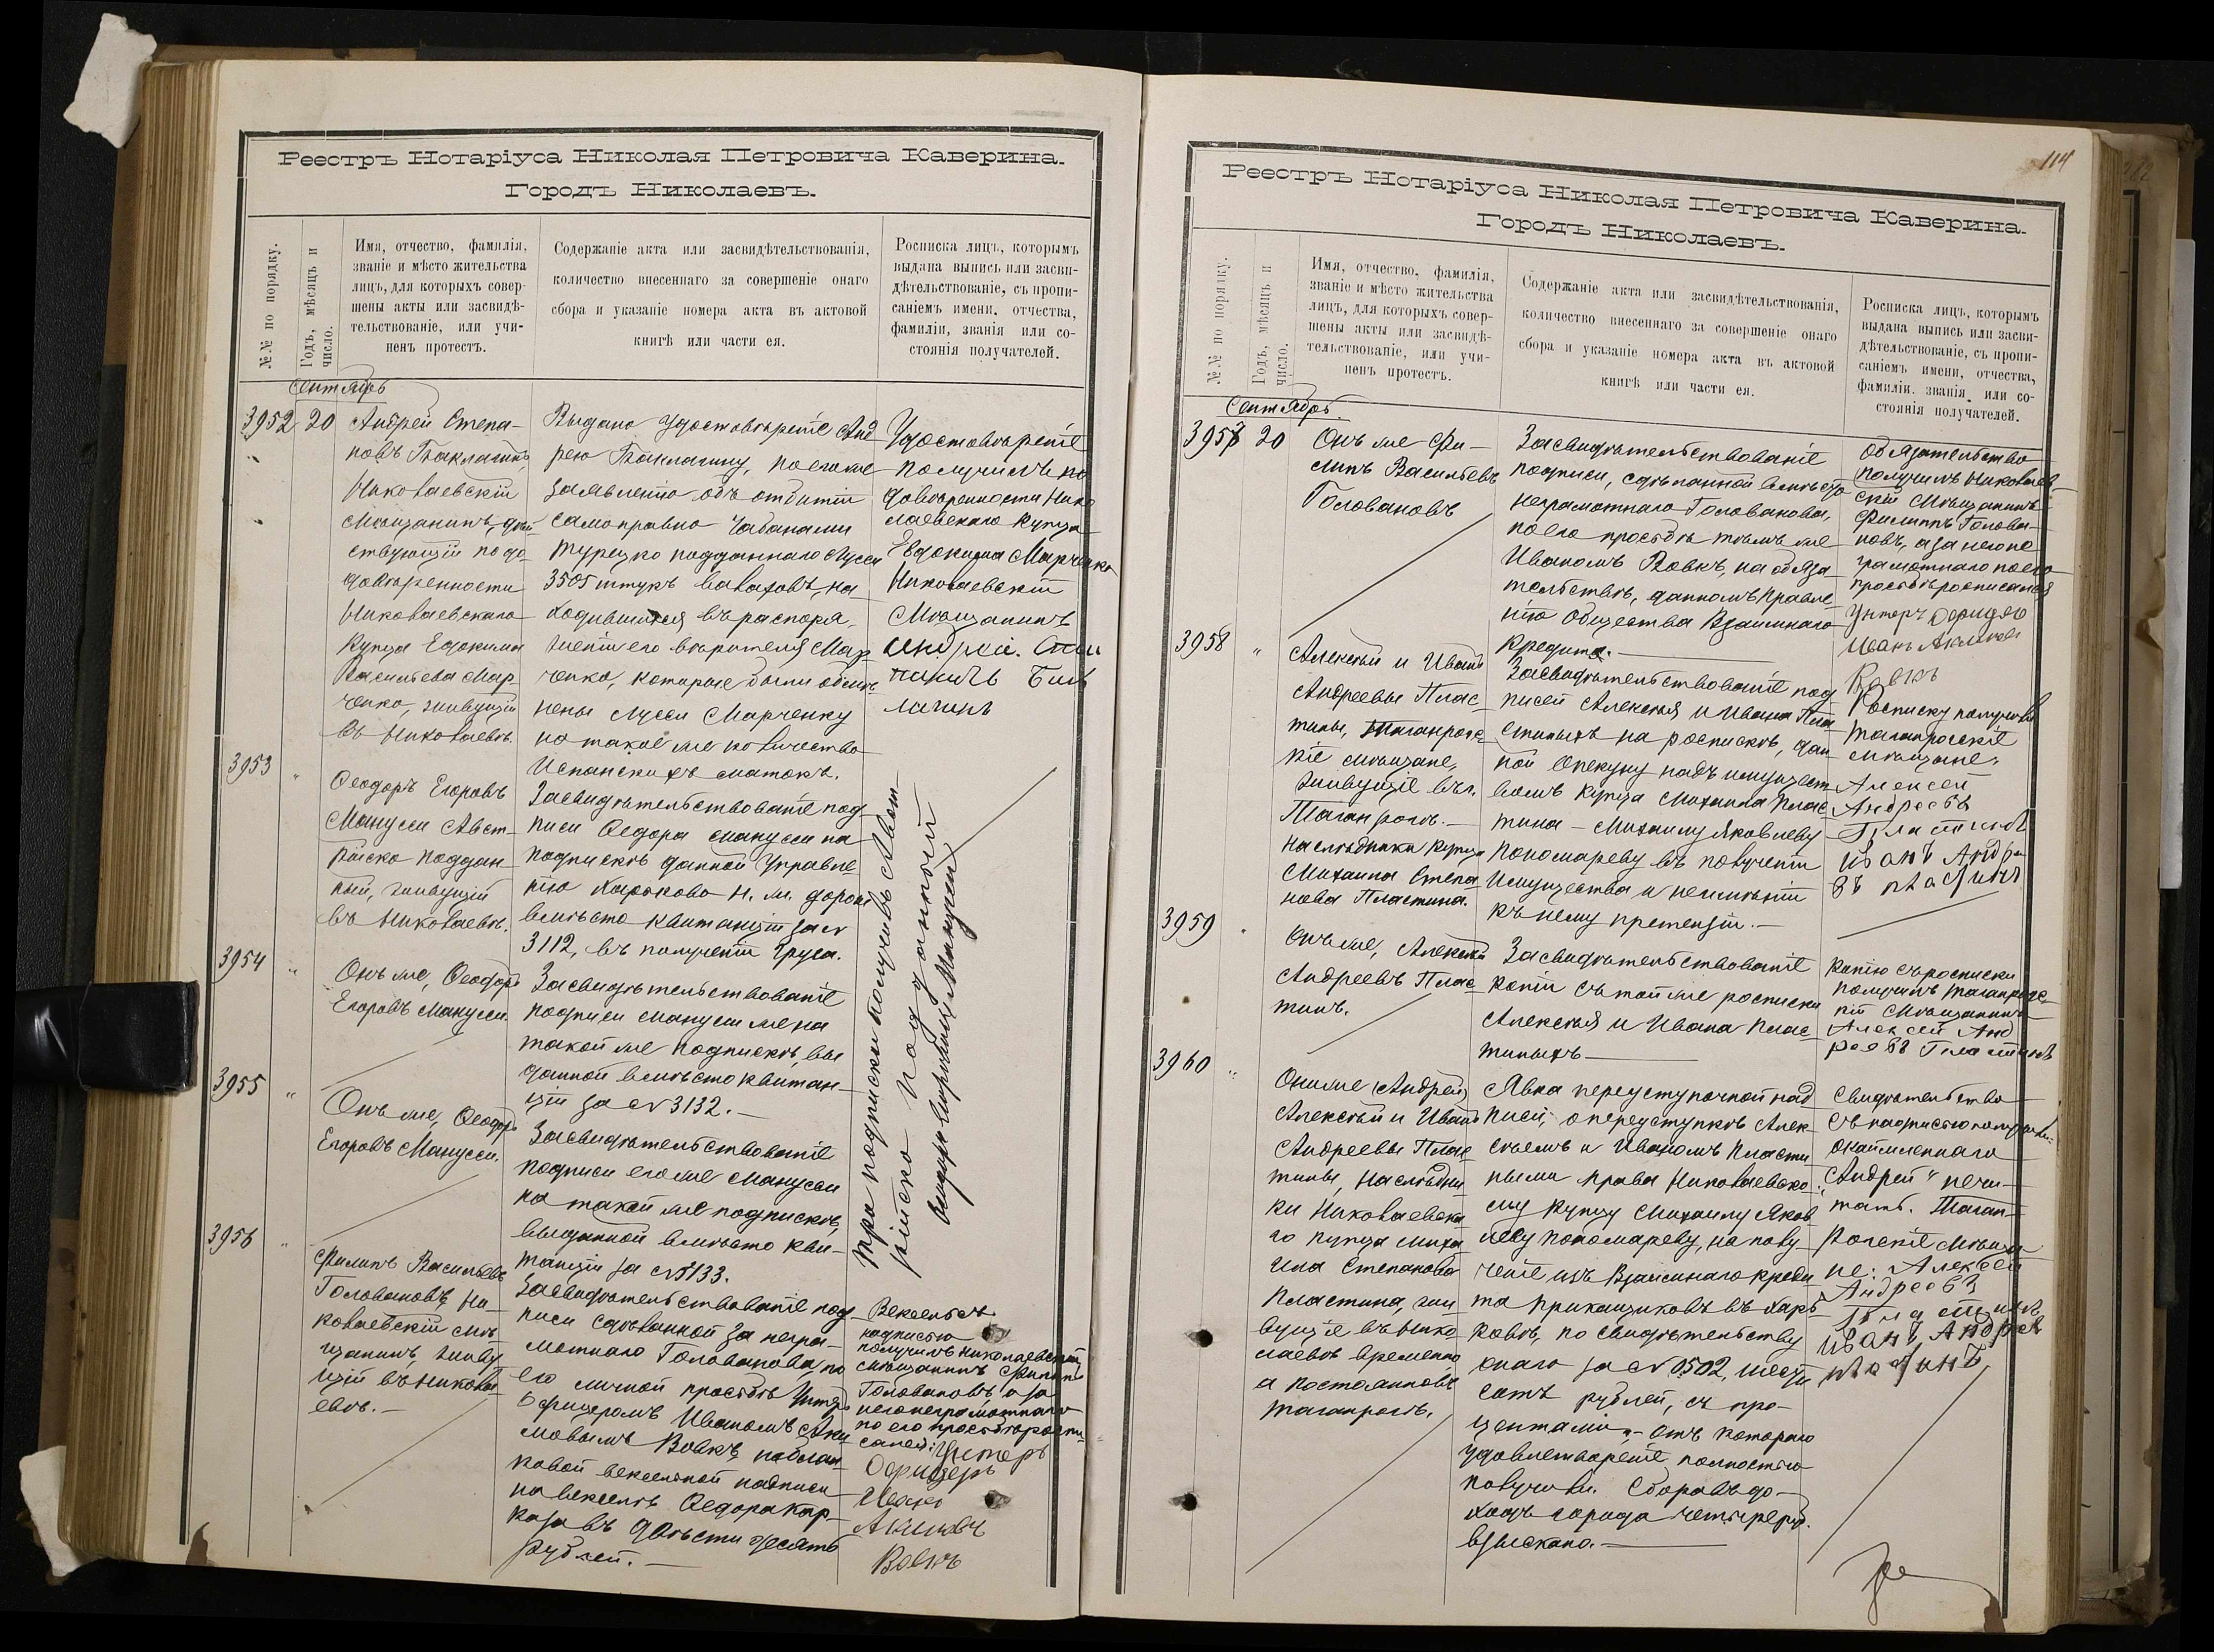 Реестръ Нотаріуса Николая Петровича Каверина.
Городъ Николаевъ.
№№ по порядку.
Годъ, мѣсяцъ и
число.
Имя, отчество, фамилія,
званіе и мѣсто жительства
лицъ, для которыхъ совер-
шены акты или засвидѣ-
тельствованіе, или учи-
ненъ протестъ.
Содержаніе акта или засвидѣтельствованія,
количество внесеннаго за совершеніе онаго
сбора и указаніе номера акта въ актовой
книгѣ или части ея.
Росписка лицъ, которымъ
выдана выпись или засви-
дѣтельствованіе, съ пропи-
саніемъ имени, отчества,
фамиліи, званія или со-
стоянія получателей.
Сентябрь
3952
20
Андрей Степа-
новъ Баклагинъ,
Николаевскій
мѣщанинъ, дѣй
ствующій по до-
довѣренности
Николаевскаго
купца Евдокима
Васильева Мар-
ченко, живущій
въ Николаевѣ.
Выдано удостовѣреніе Анд
рею Баклагину, по его же
заявленію объ отбитіи
самоправно чабанами
турецко подданнаго Мусси
3505 штукъ валаховъ, на
ходившихся въ распоря-
женіи его вѣрителя Мар
ченко, которые были обмѣ
нены Мусси Марченку
на такое же количество
Испанскихъ матокъ.
Удостовѣреніе
получилъ по
довѣренности Нико
лаевскаго купца
Евдокима Марченко
Николаевскій
мѣщанинъ
Андрей
3953
Ѳеодоръ Егоровъ
Манусси Авст-
рійско поддан-
ный, живущій
въ Николаевѣ.
Засвидѣтельствованіе под-
писи Ѳедора Манусси на
подпискѣ данной Управле
нію Харьково Н. ж. дороги
вмѣсто квитанціи за №
3112, въ полученіи груза.
3954
Онъ же, Ѳеодоръ
Егоровъ Манусси.
Засвидѣтельствованіе
подписи Манусси же на
такой же подпискѣ, вы
данной вмѣсто квитан-
ціи за № 3132.—
3955
Онъ же, Ѳеодоръ
Егоровъ Манусси.
Засвидѣтельствованіе
подписи его же Манусси
на такой же подпискѣ,
выданной вмѣсто кви-
танціи за № 3133.
Три подписки получилъ Авст-
рійско подданный
Манусси
3956
Филипъ Васильевъ
Головановъ, Ни-
колаевскій мѣ
щанинъ, живу
щій въ Никола
евѣ.—
Засвидѣтельствованіе под
писи сдѣланной за негра-
мотнаго Голованова, по
его личной просьбѣ Унтеръ
Офицеромъ Иваномъ Аки
мовымъ Вовкъ, на блан
ковой вексельной надписи
на векселѣ Ѳедора Кар-
каза въ двѣсти десять
рублей.—
Вексель съ
надписью
получилъ Николаевскій
мѣщанинъ Филипъ
Головановъ, а за
него неграмотнаго
по его просьбѣ роспи-
сался: Унтеръ
Офицеръ
Иванъ
Акимовъ
Вовкъ
114
Реестръ Нотаріуса Николая Петровича Каверина.
Городъ Николаевъ.
№№ по порядку.
Годъ, мѣсяцъ и
число.
Имя, отчество, фамилія,
званіе и мѣсто жительства
лицъ, для которыхъ совер-
шены акты или засвидѣ-
тельствованіе, или учи-
ненъ протестъ.
Содержаніе акта или засвидѣтельствованія,
количество внесеннаго за совершеніе онаго
сбора и указаніе номера акта въ актовой
книгѣ или части ея.
Росписка лицъ, которымъ
выдана выпись или засви-
дѣтельствованіе, съ пропи-
саніемъ имени, отчества,
фамиліи, званія или со-
стоянія получателей.
Сентябрь.
3957
20
Онъ же Фи-
липъ Васильевъ
Головановъ
Засвидѣтельствованіе
подписи, сдѣланной вмѣсто
неграмотнаго Голованова,
по его просьбѣ тѣмъ же
Иваномъ Вовкъ, на обяза
тельствѣ, данномъ Правле
нію Общества Взаимнаго
Кредита.—
Обязательство
получилъ Николаев
скій мѣщанинъ
Филипъ Голова-
новъ, а за него не
грамотнаго по его
просьбѣ росписался
Унтеръ Офицеръ
Иванъ Акимовъ
Вовкъ
3958
"
Алексѣй и Иванъ
Андреевы Плас-
тины, Таганрогс-
кіе мѣщане,
живущіе въ г.
Таганрогѣ.—
Наслѣдники купца
Михаила Степа
нова Пластина.
Засвидѣтельствованіе под
писей Алексѣя и Ивана Пла
стиныхъ на роспискѣ, дан
ной Опекуну надъ имущест
вомъ купца Михаила Плас
тина - Михаилу Яковлеву
Пономареву въ полученіи
имущества и неимѣніи
къ нему претензій.—
Росписку получили
Таганрогскіе
мѣщане:
Алексей
Андреевъ
Пластинъ
иванъ Андре
въ пластинъ
3959
Онъ же, Алексѣй
Андреевъ Плас
тинъ.
Засвидѣтельствованіе
копіи съ той же росписки
Алексѣя и Ивана Плас
тиныхъ—
Копію съ росписки
получилъ Таганрогс-
кій мѣщанинъ
Алексей Анд
реевъ Пластинъ
3960
"
Они же (Андрей)
Алексѣй и Иванъ
Андреевы Плас
тины, Наслѣдни
ки Николаевска
го купца Миха
ила Степанова
Пластина, жи
вущіе въ Нико
лаевѣ временно
а постоянно въ
Таганрогѣ.
Явка переуступочной над
писи, о переуступкѣ Алек
сѣемъ и Иваномъ Пласти
ными права Николаевско
му купцу Михаилу Яков
леву Пономареву, на полу-
ченіе изъ Взаимнаго креди
та приказчиковъ въ Харь
ковѣ, по свидѣтельству
онаго за № 0502, шесть
сотъ рублей, съ про-
центами,- отъ котораго
удовлетвореніе полностію
получили. Сборовъ въ до-
ходъ города четыре руб.
взыскано.—
Свидѣтельство
съ надписью получили.
окаймленнаго
"Андрей" нечи-
тать. Таган-
рогскіе мѣща
не: Алексей
Андреевъ
Пластинъ,
иванъ, Андрев
пластинъ,